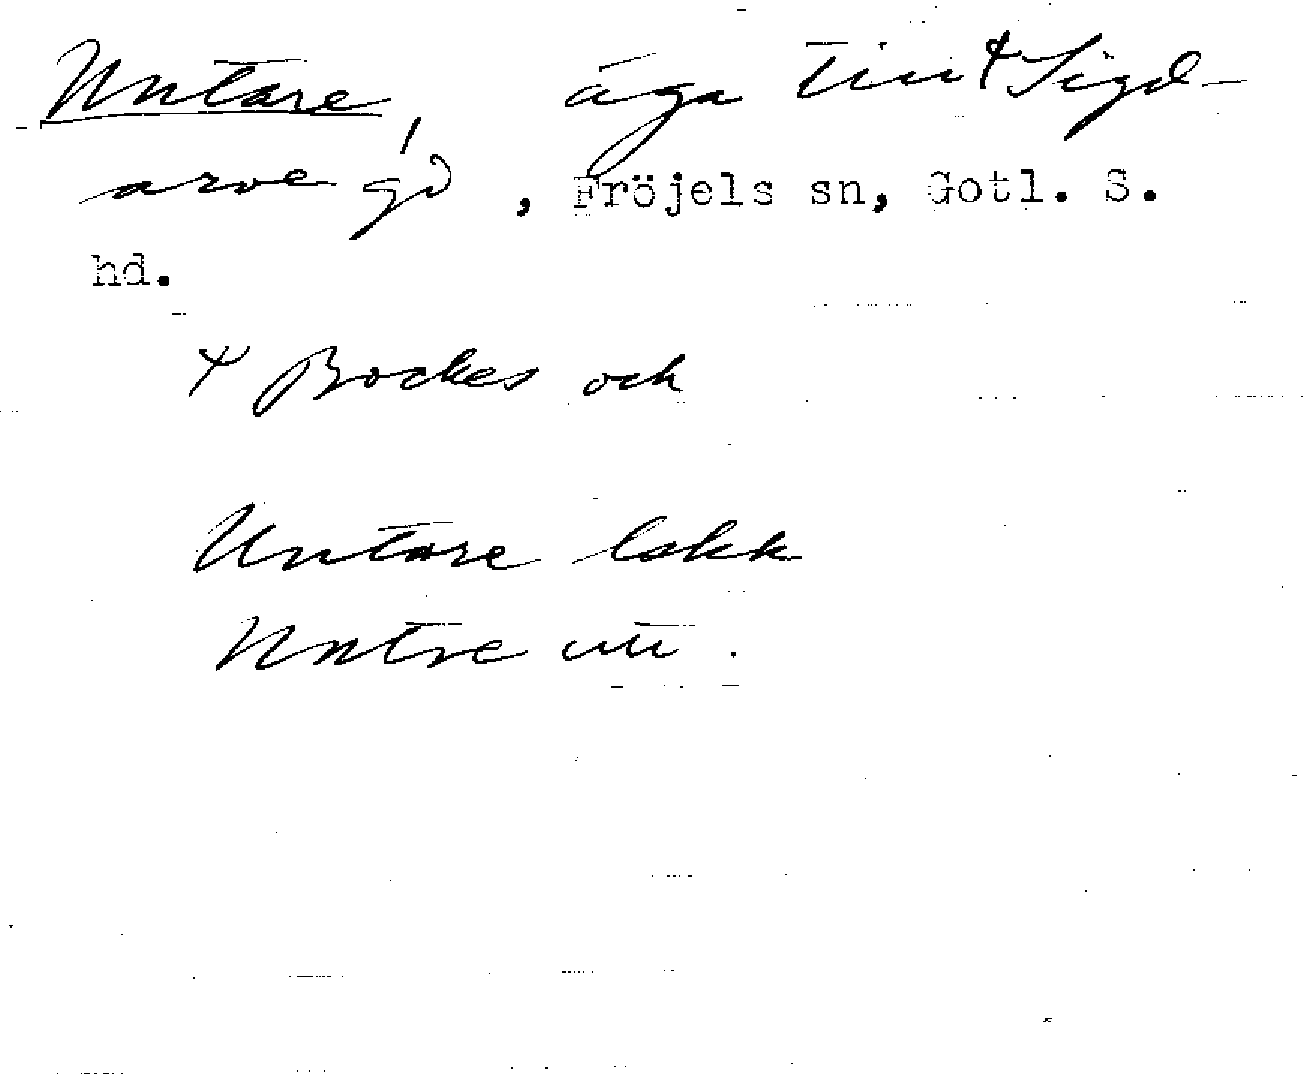 Untare, äga till + Sigd-
arve gd, Fröjels sn, Gotl. S.
hd.
+ Bockes och
Untare lakk
Untre